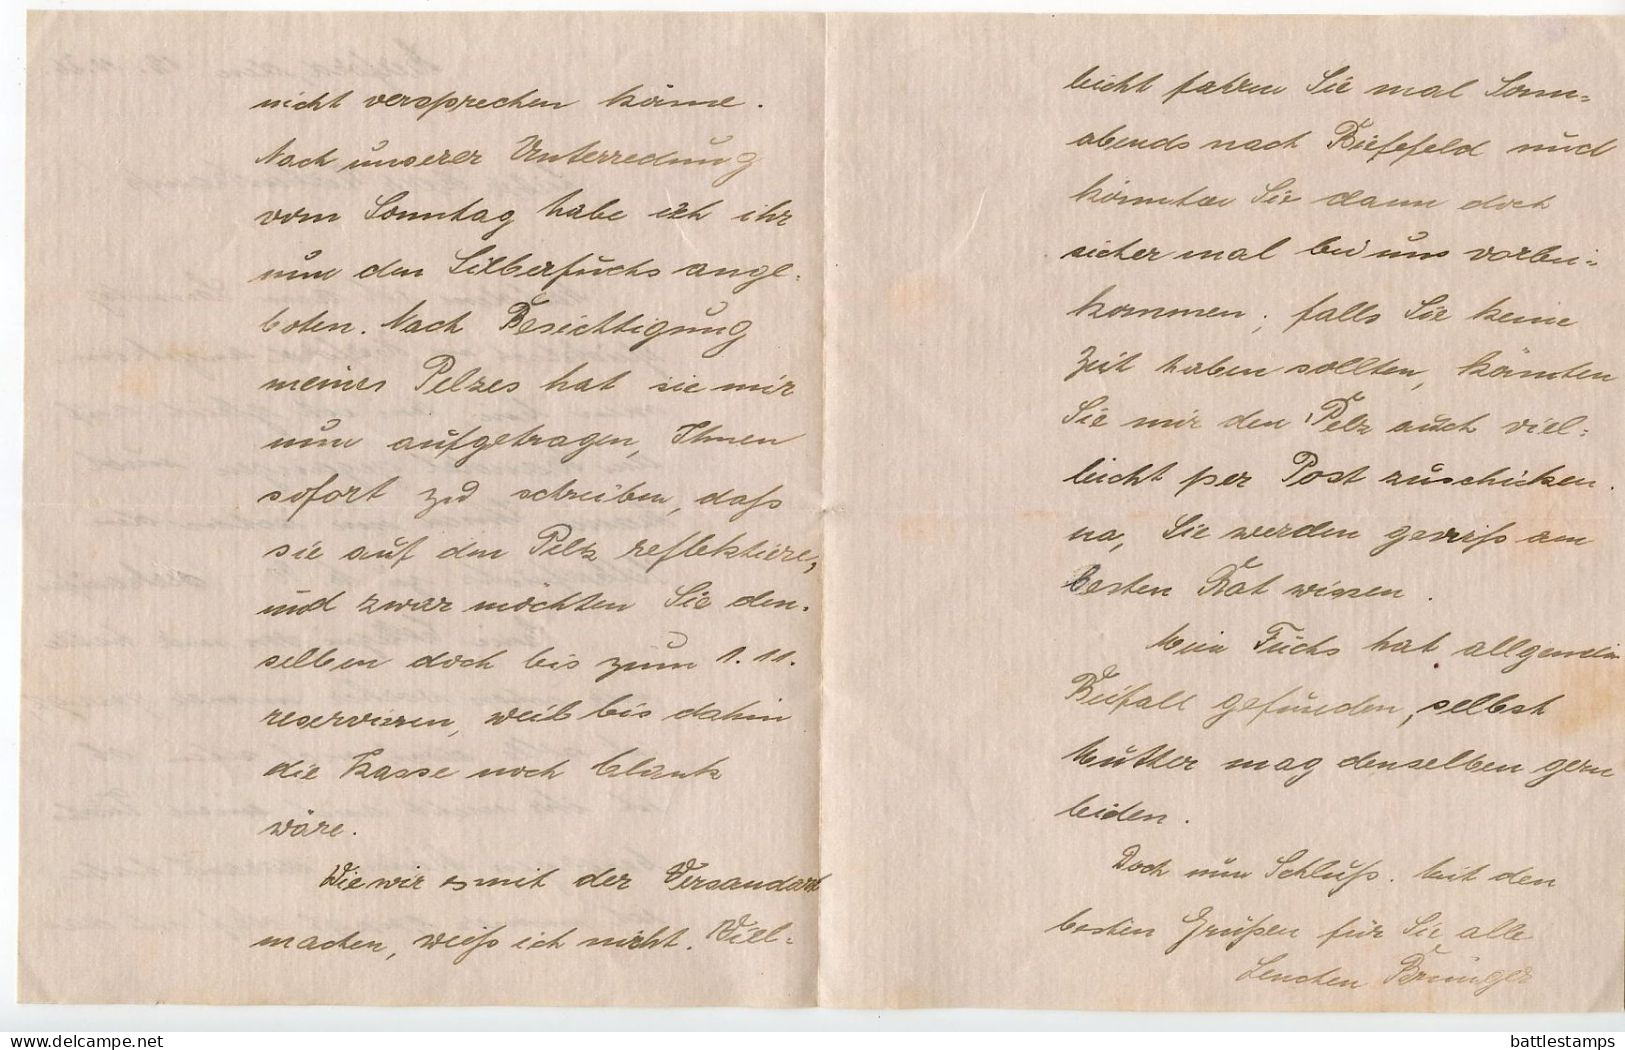 nicht versprechen könne.
Nach unserer Unterredung
vom Sonntag habe ich ihr
nun den Silberfuchs ange-
boten. Nach Besichtigung
meines Pelzes hat sie mir
nun aufgetragen, Ihnen
sofort zu schreiben, daß
sie auf den Pelz reflektiere,
und zwar möchten Sie den-
selben doch bis zum 1.11.
reservieren, weil bis dahin
die Kasse noch blank
wäre.
Wie wir es mit der Versandart
machen, weiß ich nicht. Viel-
leicht fahren Sie mal Sonn-
abends nach Bielefeld und
könnten Sie dann doch
sicher mal bei uns vorbei-
kommen, falls Sie keine
Zeit haben sollten, könnten
Sie mir den Pelz auch viel-
leicht per Post zuschicken.
na, Sie werden gewiß am
besten Rat wissen.
Mein Fuchs hat allgemein
Beifall gefunden, selbst
Mutter mag denselben gern
leiden.
Doch nun Schluß. Mit den
besten Grüßen für Sie alle
Lenchen Brünger
delcampe.net
battlestamps